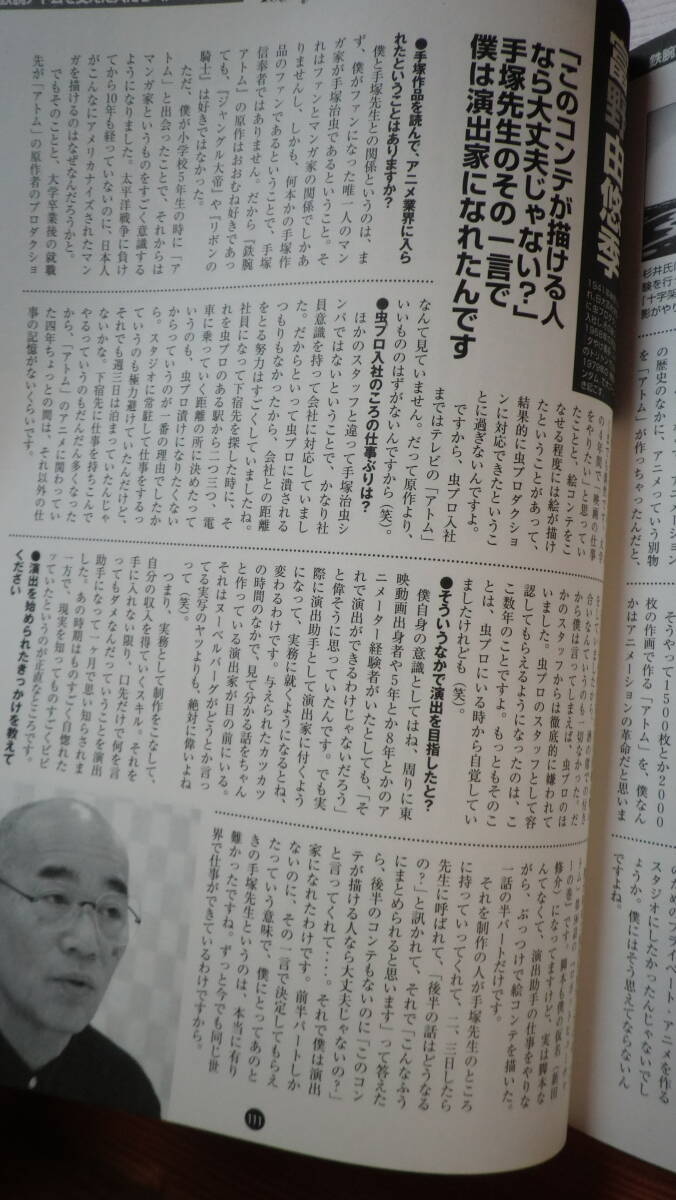 富野由悠季
「このコンテが描ける人
なら大丈夫じゃない?」
手塚先生のその一言で
僕は演出家になれたんです
●手塚作品を読んで、アニメ業界に入ら
れたということはありますか?
僕と手塚先生との関係というのは、ま
ず、僕がファンになった唯一人のマン
ガ家が手塚治虫であるということ。そ
れはファンとマンガ家の関係でしかあ
りませんし、しかも、何本かの手塚作
品のファンであるということで、手塚
信奉者ではありません。だから『鉄腕
アトム』の原作はおおむね好きであっ
ても、『ジャングル大帝』や『リボンの
騎士』は好きではなかった。
ただ、僕が小学校5年生の時に「ア
トム」と出会ったことで、それからは
マンガ家というものをすごく意識する
ようになりました。太平洋戦争に負け
てから10年も経っていないのに、日本人
がこんなにアメリカナイズされたマン
ガを描けるのはなぜなんだろうかと。
でもそのことと、大学卒業後の就職
先が「アトム」の原作者のプロダクショ
の4年間で「映画の仕事
をやりたい」と思ってい
たことと、絵コンテをこ
なせる程度には絵が描け
たということがあって、
結果的に虫プロダクショ
ンに対応できたというこ
とに過ぎないんですよ。
ですから、虫プロ入社
まではテレビの「アトム」
なんて見ていません。だって原作より、
いいもののはずがないんですから(笑)。
●虫プロ入社のころの仕事ぶりは?
ほかのスタッフと違って手塚治虫シ
ンパではないということで、かなり社
員意識を持って会社に対応していまし
た。だからといって虫プロに潰される
つもりもなかったから、会社との距離
をとる努力はすごくしていましたね。
社員になって下宿先を探した時に、そ
れを虫プロのある駅から二つ三つ、電
車に乗っていく距離の所に決めたって
いうのも、虫プロ漬けになりたくない
からっていうのが一番の理由でしたか
ら。スタジオに常駐して仕事をするっ
ていうのも極力避けていたんだけど、
それでも週三日は泊まっていたんじゃ
ないかな。下宿先に仕事を持ちこんで
やるっていうのもだんだん多くなった
から、「アトム」のアニメに関わってい
た四年ちょっとの間は、それ以外の仕
事の記憶がないくらいです。
合いなんていうのも一切なかった。だ
から僕は言ってしまえば、虫プロのほ
かのスタッフからは徹底的に嫌われて
いました。虫プロのスタッフとして容
認してもらえるようになったのは、こ
こ数年のことですよ。もっともそのこ
とは、虫プロにいる時から自覚してい
ましたけれども(笑)。
●そういうなかで演出を目指したと?
僕自身の意識としてはね、周りに東
映動画出身者や5年とか8年とかのア
ニメーター経験者がいたとしても、「そ
れで演出ができるわけじゃないだろう」
と偉そうに思っていたんです。でも実
際に演出助手として演出家に付くよう
になって、実務に就くようになるとね、
変わるわけです。与えられたカツカツ
の時間のなかで、見て分かる話をちゃん
と作っている演出家が目の前にいる。
それはヌーベルバーグがどうとか言っ
てる実写のヤツよりも、絶対に偉いよね
って(笑)。
つまり、実務として制作をこなして、
自分の収入を得ていくスキル。それを
手に入れない限り、口先だけで何を言
ってもダメなんだっていうことを演出
助手になって一ヶ月で思い知らされま
した。あの時期はものすごく自惚れた
一方で、現実を知ってものすごくビビ
ッていたというのが正直なところです。
●演出を始められたきっかけを教えて
ください
修介)になってますけど、実は脚本な
んてなくて、演出助手の仕事をやりな
がら、ぶっつけで絵コンテを描いた。
一話の半パートだけです。
それを制作の人が手塚先生のところ
に持っていってくれて、二、三日したら
先生に呼ばれて、「後半の話はどうなる
の?」と訊かれて、それで「こんなふう
にまとめられると思います」って答えた
ら、後半のコンテもないのに「このコン
テが描ける人なら大丈夫じゃないの?」
と言ってくれて‥‥。それで僕は演出
家になれたわけです。前半パートしか
ないのに、その一言で決定してもらえ
たっていう意味で、僕にとってあのと
きの手塚先生というのは、本当に有り
難かったですね。ずっと今でも同じ世
界で仕事ができているわけですから。
111
の歴史のなかに、アニメっていう別物
を「アトム」が作っちゃったんだと、
そうやって1500枚とか2000
枚の作画で作る「アトム」を、僕なん
かはアニメーションの革命だと思いま
スタジオにしたかったんじゃないでし
ょうか。僕にはそう思えてならないん
ですよね。